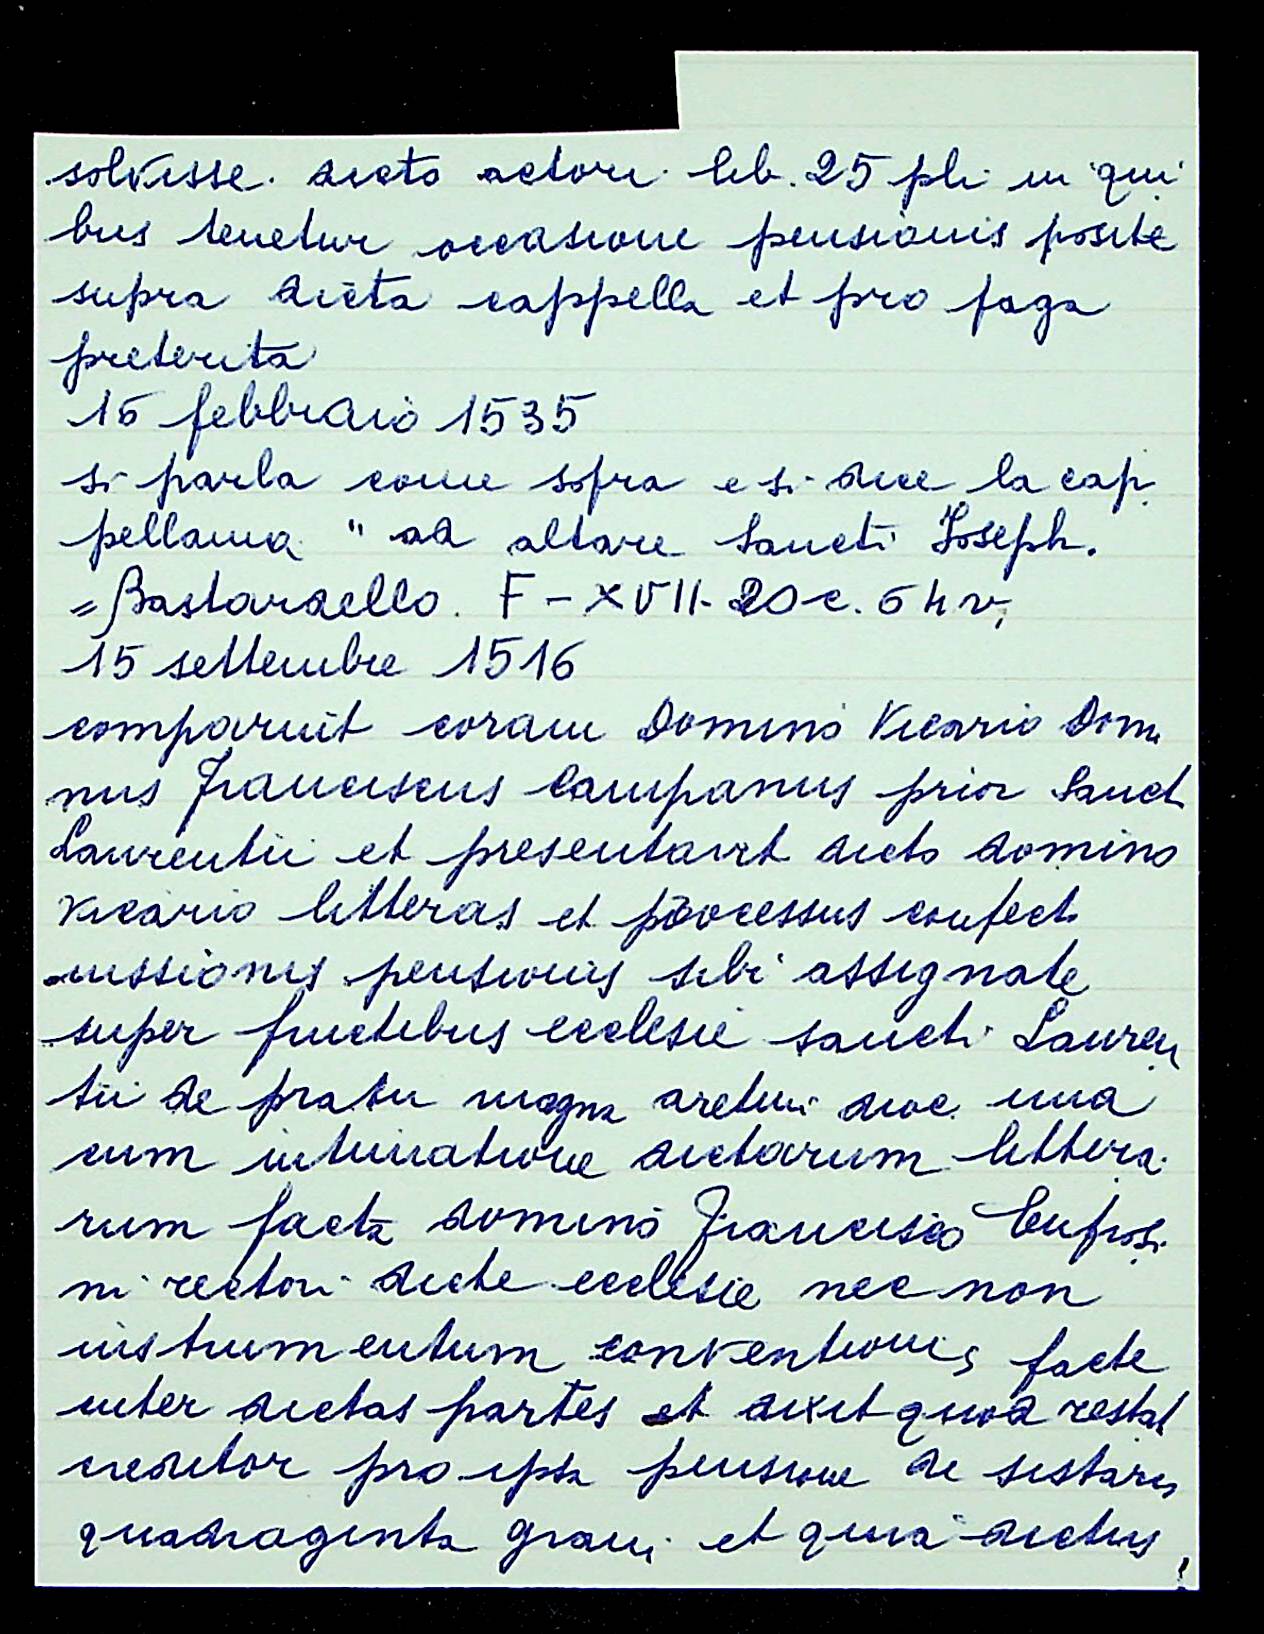 solvisse dicto actori lib. 25 pli in qui
bus tenetur occasione pensionis posite
supra dicta cappella et pro paga
preterita
16 febbraio 1535
si parla come sopra e si dice la cap
pellania "ad altare Sancti Joseph.
= Bastardello. F - XVII - 20 c. 64v,
15 settembre 1516
comparuit coram Domino Vicario Domi
nus Franciscus Campanus prior Sancti
Laurentii et presentavit dicto domino
vicario litteras et processus confect
missionis pensionis sibi assignate
super fructibus ecclesie sancti Lauren
tii de pratu magna aretini dioc. una
cum intimatione dictarum littera
rum facta domino Francisco Eufrosi
ni rectori dicte ecclesie nec non
instrumentum conventionis facte
inter dictas partes et dixit quod restat
creditor pro ipsa pensione de sistariis
quadraginta grani et quia dictus